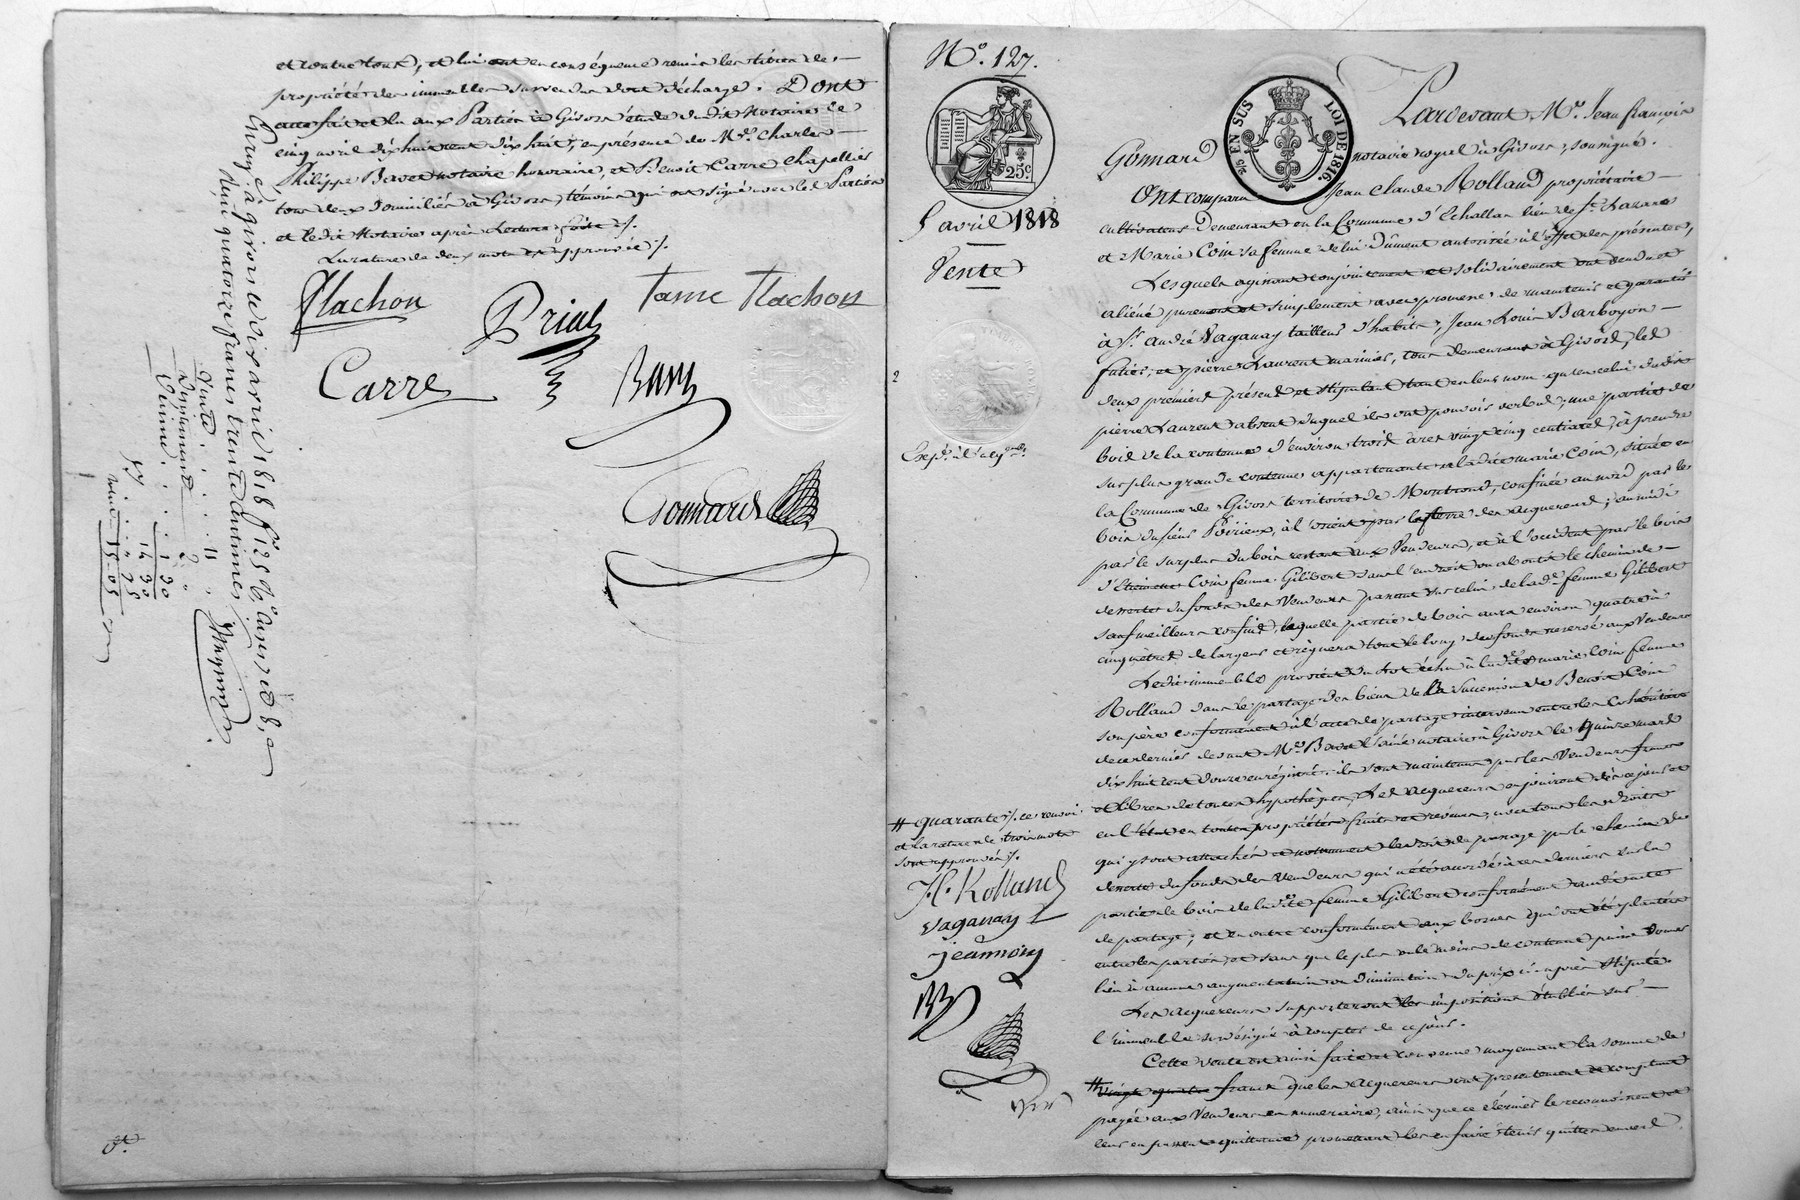 et contre tous, et lui ont en conséquence remis les titres de
propriétés des immeubles survendus dont décharge. Dont
acte fait et lu aux Parties à Givors étude dudit Notaire le
cinq avril dix huit cent dix huit, en présence de Mrs. Charles
Philippe Bavet notaire honoraire, et Benoit Carre Chapellier
tous deux domiciliés à Givors, témoins qui ont signé avec les Parties
et ledit Notaire après Lecture faite ./.
La rature de deux mots est approuvée ./.
Flachon
Prial
Fanie Flachon
Carre
Gonnard
Enregé. à Givors le dix avril 1818 f° 125 V° Cases 7 et 8,
reçu quatorze francs trente centimes
Minute
1 30
14 30
15-05
N.° 127.
25c
5 avril 1818
Vente
Expé. à l'acqr.
# quarante ./. ce renvoi
et la rature de trois mots
sont approuvés ./.
JC. Rolland
vaganay
jeannoiy
2/5 EN SUS
LOI DE 1816.
Pardevant Me. Jean françois
Gonnard notaire royal à Givors, soussigné.
Ont comparu Jean Claude Rolland propriétaire
cultivateur demeurant en la Commune d'Echallas lieu de St. Lazare
et Marie Coin sa femme de lui dûment autorisée à l'effet des présentes,
Lesquels agissant conjointement et solidairement ont vendu et
aliéné purement et simplement avec promesse de maintenir et garantir
à Sr. André Vaganay tailleur d'habits, Jean Louis Barboyon
, et pierre Laurent marinier, tous demeurant à Givors, les
deux premiers présens et stipulant tant en leur nom qu'en celui dudit
pierre Laurent absent duquel ils ont pouvoir verbal, une partie de
bois de la contenue d'environ trois ares vingt cinq centiares à prendre
sur plus grande contenue appartenante à ladite marie Coin, située en
la Commune de Givors territoire de Montrond, confinée au nord par le
bois du sieur Poirieux, à l'orient par la terre des acquereurs, au midi
par le surplus du bois restant aux Vendeurs, et à l'occident par le bois
d'Etiennette Coin femme Gilibert dans l'endroit ou aboutit le chemin de
desserte du fonds des Vendeurs passant sur celui de lade. femme Gilibert
sauf meilleurs confins, laquelle partie de bois aura environ quatre à
cinq mètres de largeur et régnera tout le long du fonds réservé aux Vendeurs
Ledit immeuble provient du lot échu à ladite marie Coin femme
Rolland dans le partage des biens de la Succession de Benoit Coin
son père conformément à l'acte de partage intervenu entre les Cohéritiers
de ce dernier devant Me. Bavet l'ainé notaire à Givors le quinze mars
dix huit cent douze enregistré. ils sont maintenus par les Vendeurs francs
et libres de toutes hypothèques, Les acquereurs en jouiront dès ce jour et
en l'état en toutes propriétés fruits et revenus, avec tous les droits
qui y sont attachés et notamment le droit de passage par le chemin de
desserte du fonds des Vendeurs qui a été accordé à ces derniers sur la
partie de bois de ladite femme Gilibert conformément audit acte
de partage; et en outre conformément aux bornes qui ont été plantées
entre les parties, et sans que le plus ou le moins de contenue puisse donner
lieu à aucune augmentation ou diminution du prix ci après stipulé.
Les acquereurs supporteront les impositions établies sur
l'immeuble susdésigné à compter de ce jour.
Cette vente est ainsi faite et convenue moyennant la somme de
# vingt quatre francs que les acquereurs ont présentement et comptant
payée aux Vendeurs en numéraire, ainsi que ce dernier le reconnoissent et
leur en passent quittance promettant les en faire tenir quittes envers